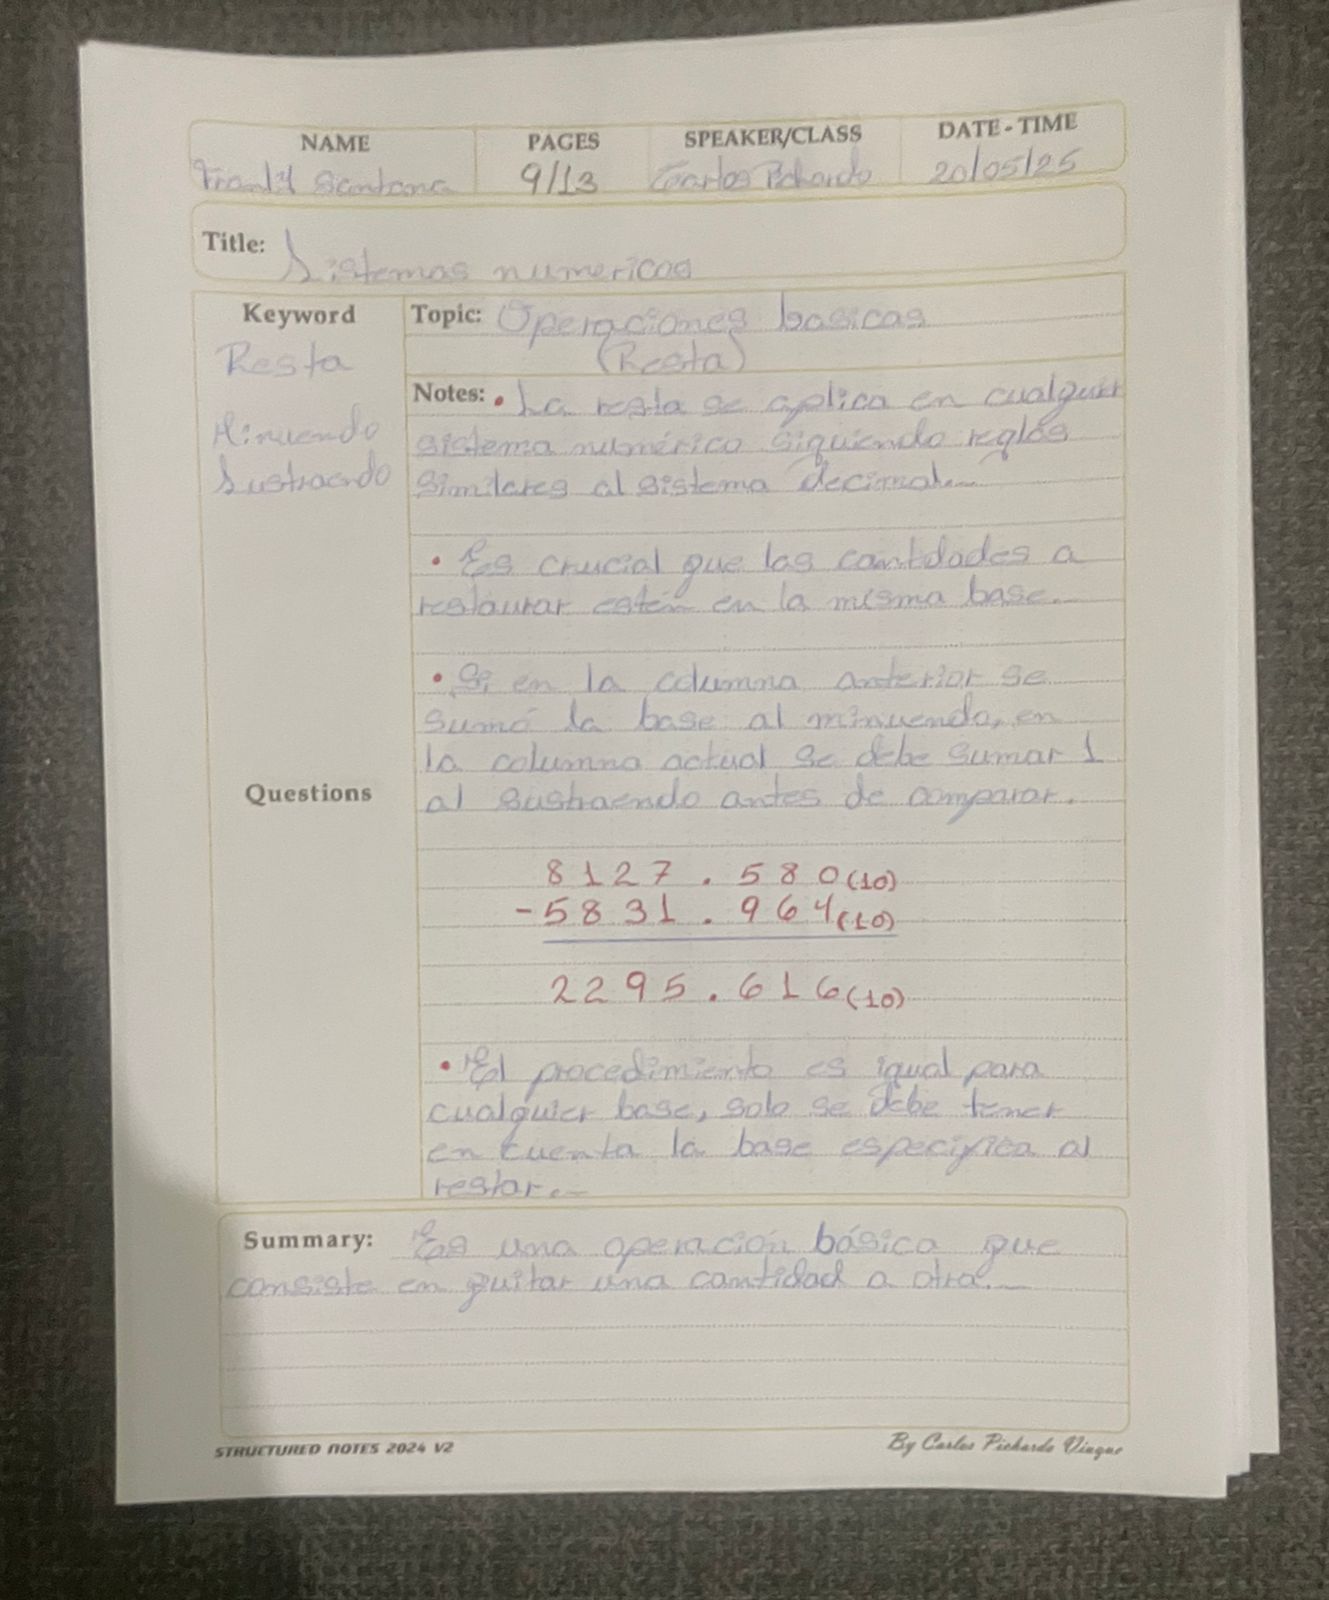 NAME PAGES SPEAKER/CLASS DATE - TIME
Santana 9/13 Carlos Pichardo 20/05/25
Title: Sistemas numericos
Keyword Topic: Operaciones basicas
Resta (Resta)
Notes: • La resta se aplica en cualquier
Minuendo sistema numérico siguiendo reglas
Sustraendo similares al sistema decimal.
• Es crucial que las cantidades a
restaurar estén en la misma base.
• Si en la columna anterior se
sumó la base al minuendo, en
la columna actual se debe sumar 1
Questions al sustraendo antes de comparar.
8127.580(10)
-5831.964(10)
2295.616(10)
• El procedimiento es igual para
cualquier base, solo se debe tener
en cuenta la base especifica al
restar.
Summary: Es una operación básica que
consiste en quitar una cantidad a otra.
STRUCTURED NOTES 2024 V2 By Carlos Pichardo Viuque